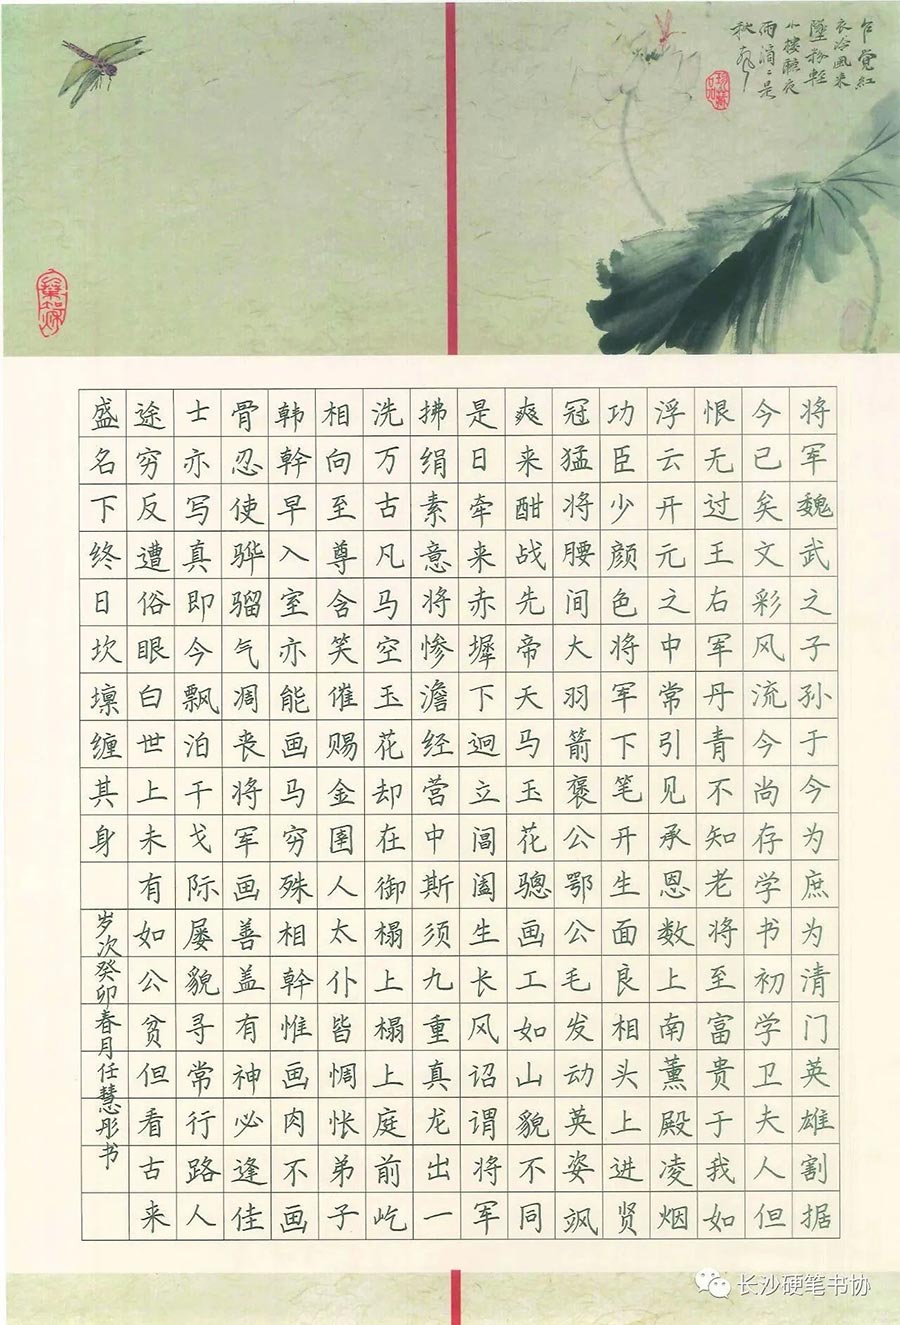 乍覺紅
衣冷風来
墜粉輕
小樓聽夜
是
秋
将军魏武之子孙于今为庶为清门英雄割据
今已矣文彩风流今尚存学书初学卫夫人但
恨无过王右军丹青不知老将至富贵于我如
浮云开元之中常引见承恩数上南薰殿凌烟
功臣少颜色将军下笔开生面良相头上进贤
冠猛将腰间大羽箭褒公鄂公毛发动英姿飒
爽来酣战先帝天马玉花骢画工如山貌不同
是日牵来赤墀下迥立阊阖生长风诏谓将军
拂绢素意将惨澹经营中斯须九重真龙出一
洗万古凡马空玉花却在御榻上榻上庭前屹
相向至尊含笑催赐金圉人太仆皆惆怅弟子
韩幹早入室亦能画马穷殊相幹惟画肉不画
骨忍使骅骝气凋丧将军画善盖有神必逢佳
士亦写真即今飘泊干戈际屡貌寻常行路人
途穷反遭俗眼白世上未有如公贫但看古来
盛名下终日坎壈缠其身
岁次癸卯春月任慧彤书
长沙硬笔书协